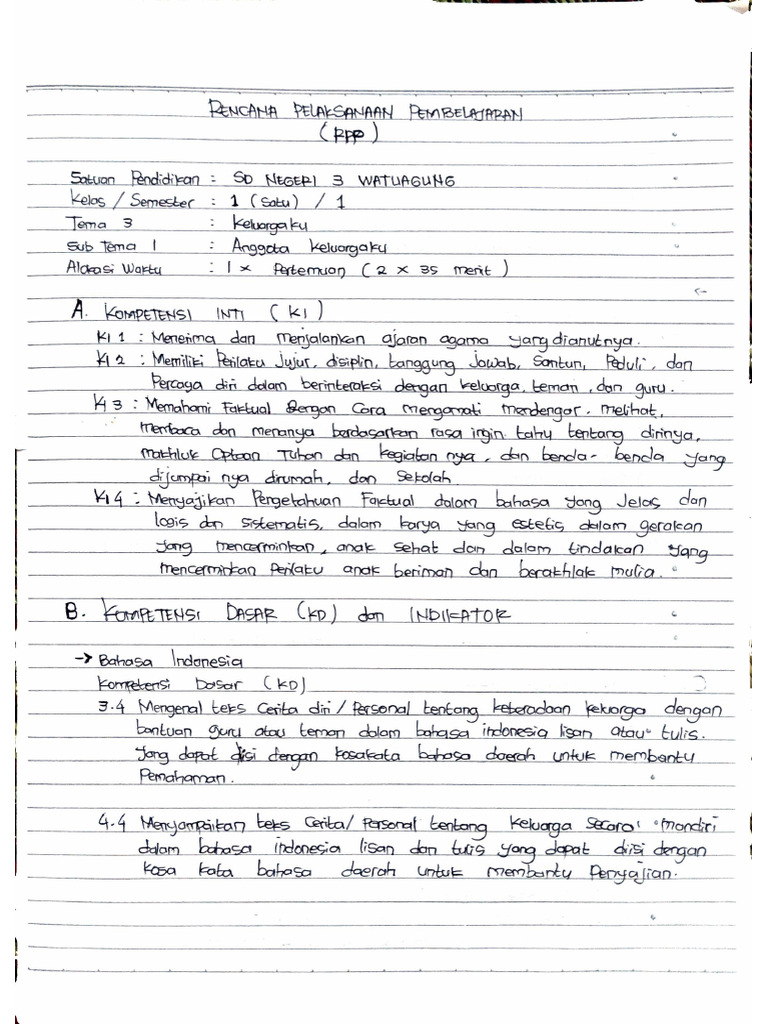 RENCANA PELAKSANAAN PEMBELAJARAN
(RPP)
Satuan Pendidikan : SD NEGERI 3 WATUAGUNG
Kelas / Semester : 1 (Satu) / 1
Tema 3 : Keluargaku
Sub Tema 1 : Anggota Keluargaku
Alokasi Waktu : 1 x Pertemuan (2 x 35 menit)
A. KOMPETENSI INTI (KI)
KI 1 : Menerima dan menjalankan ajaran agama yang dianutnya.
KI 2 : Memiliki Perilaku Jujur, disiplin, tanggung Jawab, Santun, Peduli, dan
Percaya diri dalam berinteraksi dengan keluarga, teman, dan guru.
KI 3 : Memahami Faktual Dengan Cara mengamati mendengar. melihat,
membaca dan menanya berdasarkan rasa ingin tahu tentang dirinya,
makhluk Ciptaan Tuhan dan kegiatan nya, dan benda-benda yang
dijumpai nya dirumah, dan Sekolah
KI 4 : Menyajikan Pengetahuan Faktual dalam bahasa yang Jelas dan
logis dan sistematis, dalam karya yang estetis dalam gerakan
yang mencerminkan, anak sehat dan dalam tindakan yang
mencerminkan Perilaku anak beriman dan berakhlak mulia.
B. KOMPETENSI DASAR (KD) dan INDIKATOR
→ Bahasa Indonesia
Kompetensi Dasar (KD)
3.4 Mengenal teks Cerita diri / Personal tentang keberadaan keluarga dengan
bantuan guru atau teman dalam bahasa indonesia lisan atau tulis.
Yang dapat diisi dengan kosakata bahasa daerah untuk membantu
Pemahaman.
4.4 Menyampaikan teks Cerita/ Personal tentang keluarga Secara mandiri
dalam bahasa indonesia lisan dan tulis yang dapat diisi dengan
kosa kata bahasa daerah untuk membantu Penyajian.